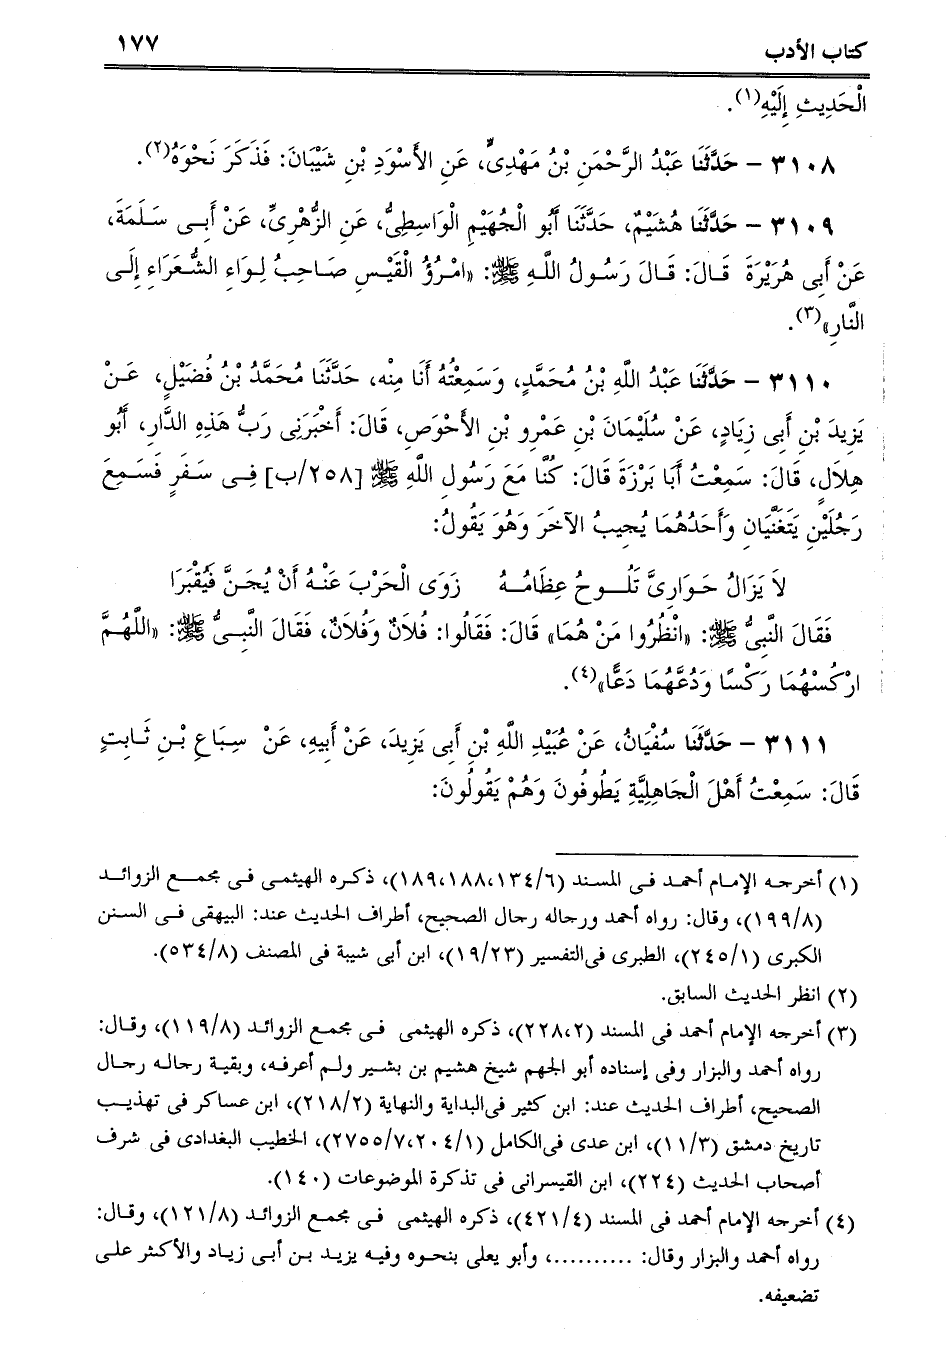 كتاب الأدب ١٧٧
الْحَدِيثِ إِلَيْهِ(١).
٣١٠٨ – حَدَّثَنَا عَبْدُ الرَّحْمَنِ بْنُ مَهْدِىٍّ، عَنِ الأَسْوَدِ بْنِ شَيْبَانَ: فَذَكَرَ نَحْوَهُ(٢).
٣١٠٩ – حَدَّثَنَا هُشَيْمٌ، حَدَّثَنَا أَبُو الْجُهَيْمِ الْوَاسِطِىُّ، عَنِ الزُّهْرِىِّ، عَنْ أَبِى سَلَمَةَ،
عَنْ أَبِى هُرَيْرَةَ قَالَ: قَالَ رَسُولُ اللهِ ﷺ: «امْرُؤُ الْقَيْسِ صَاحِبُ لِوَاءِ الشُّعَرَاءِ إِلَى
النَّارِ»(٣).
٣١١٠ – حَدَّثَنَا عَبْدُ اللهِ بْنُ مُحَمَّدٍ، وَسَمِعْتُهُ أَنَا مِنْه، حَدَّثَنَا مُحَمَّدُ بْنُ فُضَيْلٍ، عَنْ
يَزِيدَ بْنِ أَبِى زِيَادٍ، عَنْ سُلَيْمَانَ بْنِ عَمْرِو بْنِ الأَحْوَصِ، قَالَ: أَخْبَرَنِى رَبُّ هَذِهِ الدَّارِ، أَبُو
هِلاَلٍ، قَالَ: سَمِعْتُ أَبَا بَرْزَةَ قَالَ: كُنَّا مَعَ رَسُولِ اللهِ ﷺ [٢٥٨/ب] فِى سَفَرٍ فَسَمِعَ
رَجُلَيْنِ يَتَغَنَّيَانِ وَأَحَدُهُمَا يُجِيبُ الآخَرَ وَهُوَ يَقُولُ:
لاَ يَزَالُ حَوَارِىَّ تَلُوحُ عِظَامُهُ زَوَى الْحَرْبَ عَنْهُ أَنْ يُجَنَّ فَيُقْبَرَا
فَقَالَ النَّبِىُّ ﷺ: «انْظُرُوا مَنْ هُمَا» قَالَ: فَقَالُوا: فُلاَنٌ وَفُلاَنٌ، فَقَالَ النَّبِىُّ ﷺ: «اللَّهُمَّ
ارْكُسْهُمَا رَكْسًا وَدُعَّهُمَا دَعًّا»(٤).
٣١١١ – حَدَّثَنَا سُفْيَانُ، عَنْ عُبَيْدِ اللهِ بْنِ أَبِى يَزِيدَ، عَنْ أَبِيهِ، عَنْ سِبَاعِ بْنِ ثَابِتٍ
قَالَ: سَمِعْتُ أَهْلَ الْجَاهِلِيَّةِ يَطُوفُونَ وَهُمْ يَقُولُونَ:
(١) أخرجه الإمام أحمد فى المسند (١٣٤/٦، ١٨٨، ١٨٩)، ذكره الهيثمى فى مجمع الزوائد
(١٩٩/٨)، وقال: رواه أحمد ورجاله رجال الصحيح، أطراف الحديث عند: البيهقى فى السنن
الكبرى (٢٤٥/١)، الطبرى فى التفسير (١٩/٢٣)، ابن أبى شيبة فى المصنف (٥٣٤/٨).
(٢) انظر الحديث السابق.
(٣) أخرجه الإمام أحمد فى المسند (٢٢٨،٢)، ذكره الهيثمى فى مجمع الزوائد (١١٩/٨)، وقال:
رواه أحمد والبزار وفى إسناده أبو الجهم شيخ هشيم بن بشير ولم أعرفه، وبقية رجاله رجال
الصحيح، أطراف الحديث عند: ابن كثير فى البداية والنهاية (٢١٨/٢)، ابن عساكر فى تهذيب
تاريخ دمشق (١١/٣)، ابن عدى فى الكامل (٢٠٤/١، ٢٧٥٥/٧)، الخطيب البغدادى فى شرف
أصحاب الحديث (٢٢٤)، ابن القيسرانى فى تذكرة الموضوعات (١٤٠).
(٤) أخرجه الإمام أحمد فى المسند (٤٢١/٤)، ذكره الهيثمى فى مجمع الزوائد (١٢١/٨)، وقال:
رواه أحمد والبزار وقال: ..........، وأبو يعلى بنحوه وفيه يزيد بن أبى زياد والأكثر على
تضعيفه.